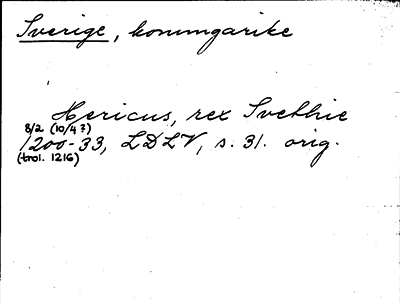 Sverige, konungarike
Hericus, rex Svethie
8/2 (10/4?)
1200-33, LDLV, s. 31. orig.
(trol. 1216)